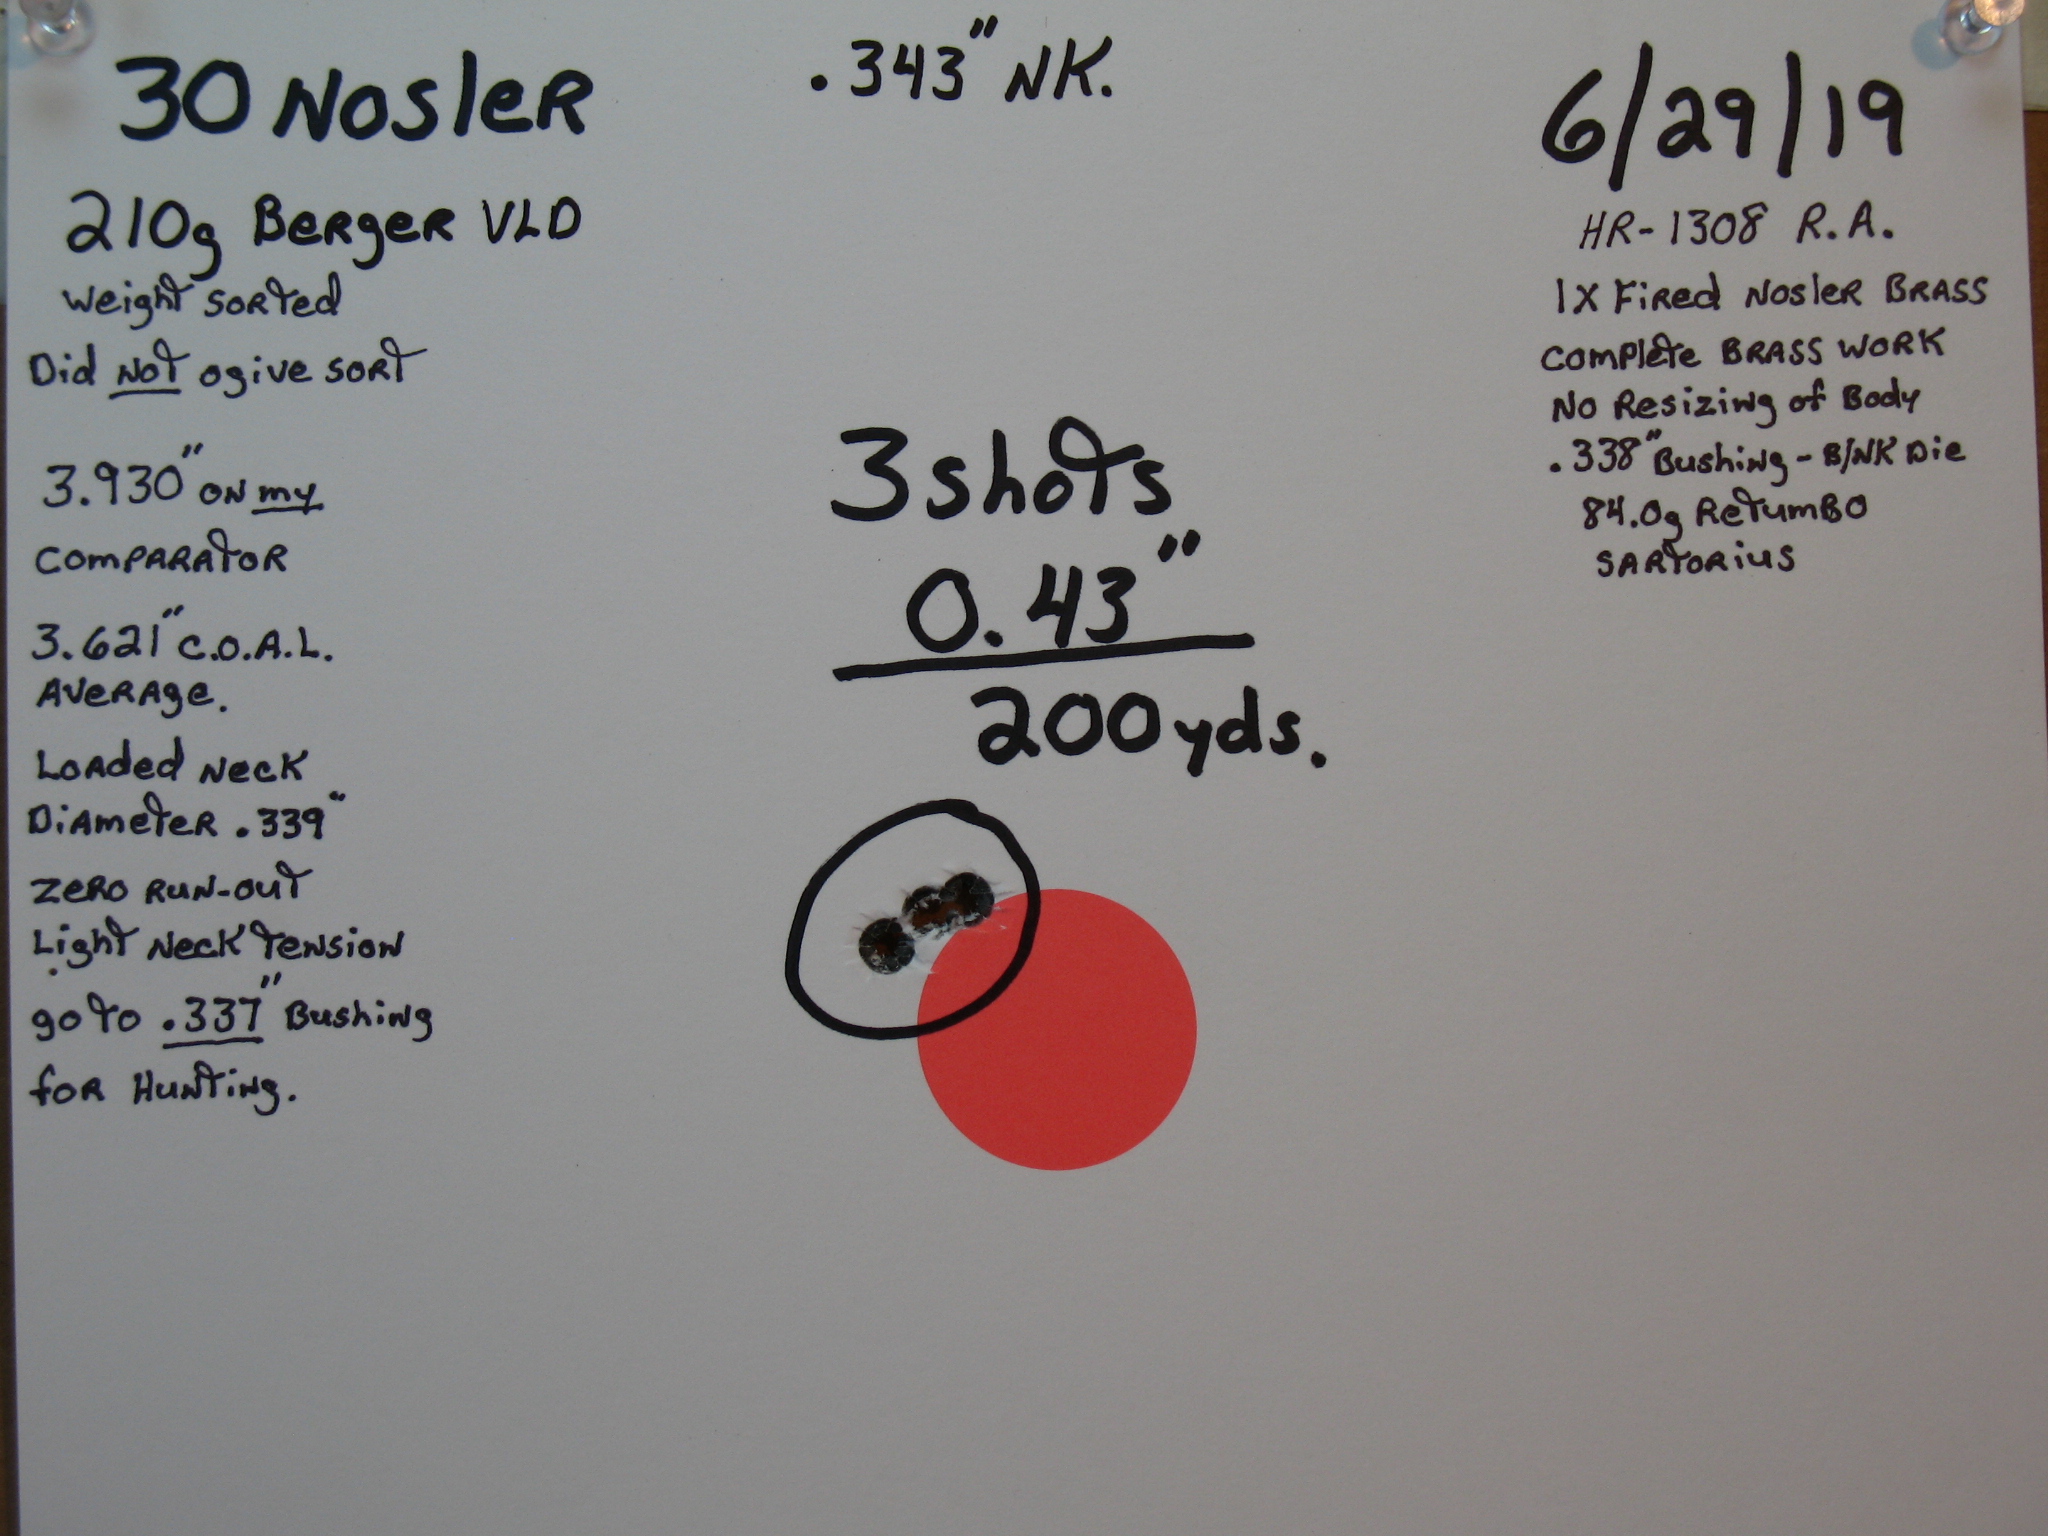 30 Nosler
210g Berger VLD
Weight Sorted
Did Not ogive sort
3.930" on my
Comparator
3.621" C.O.A.L.
Average.
Loaded Neck
Diameter .339"
Zero Run-out
Light Neck Tension
go to .337" Bushing
for Hunting.
.343" NK.
3 shots
0.43"
200 yds.
6/29/19
HR-1308 R.A.
1X Fired Nosler Brass
Complete Brass Work
No Resizing of Body
.338" Bushing - B/NK Die
84.0g Retumbo
Sartorius